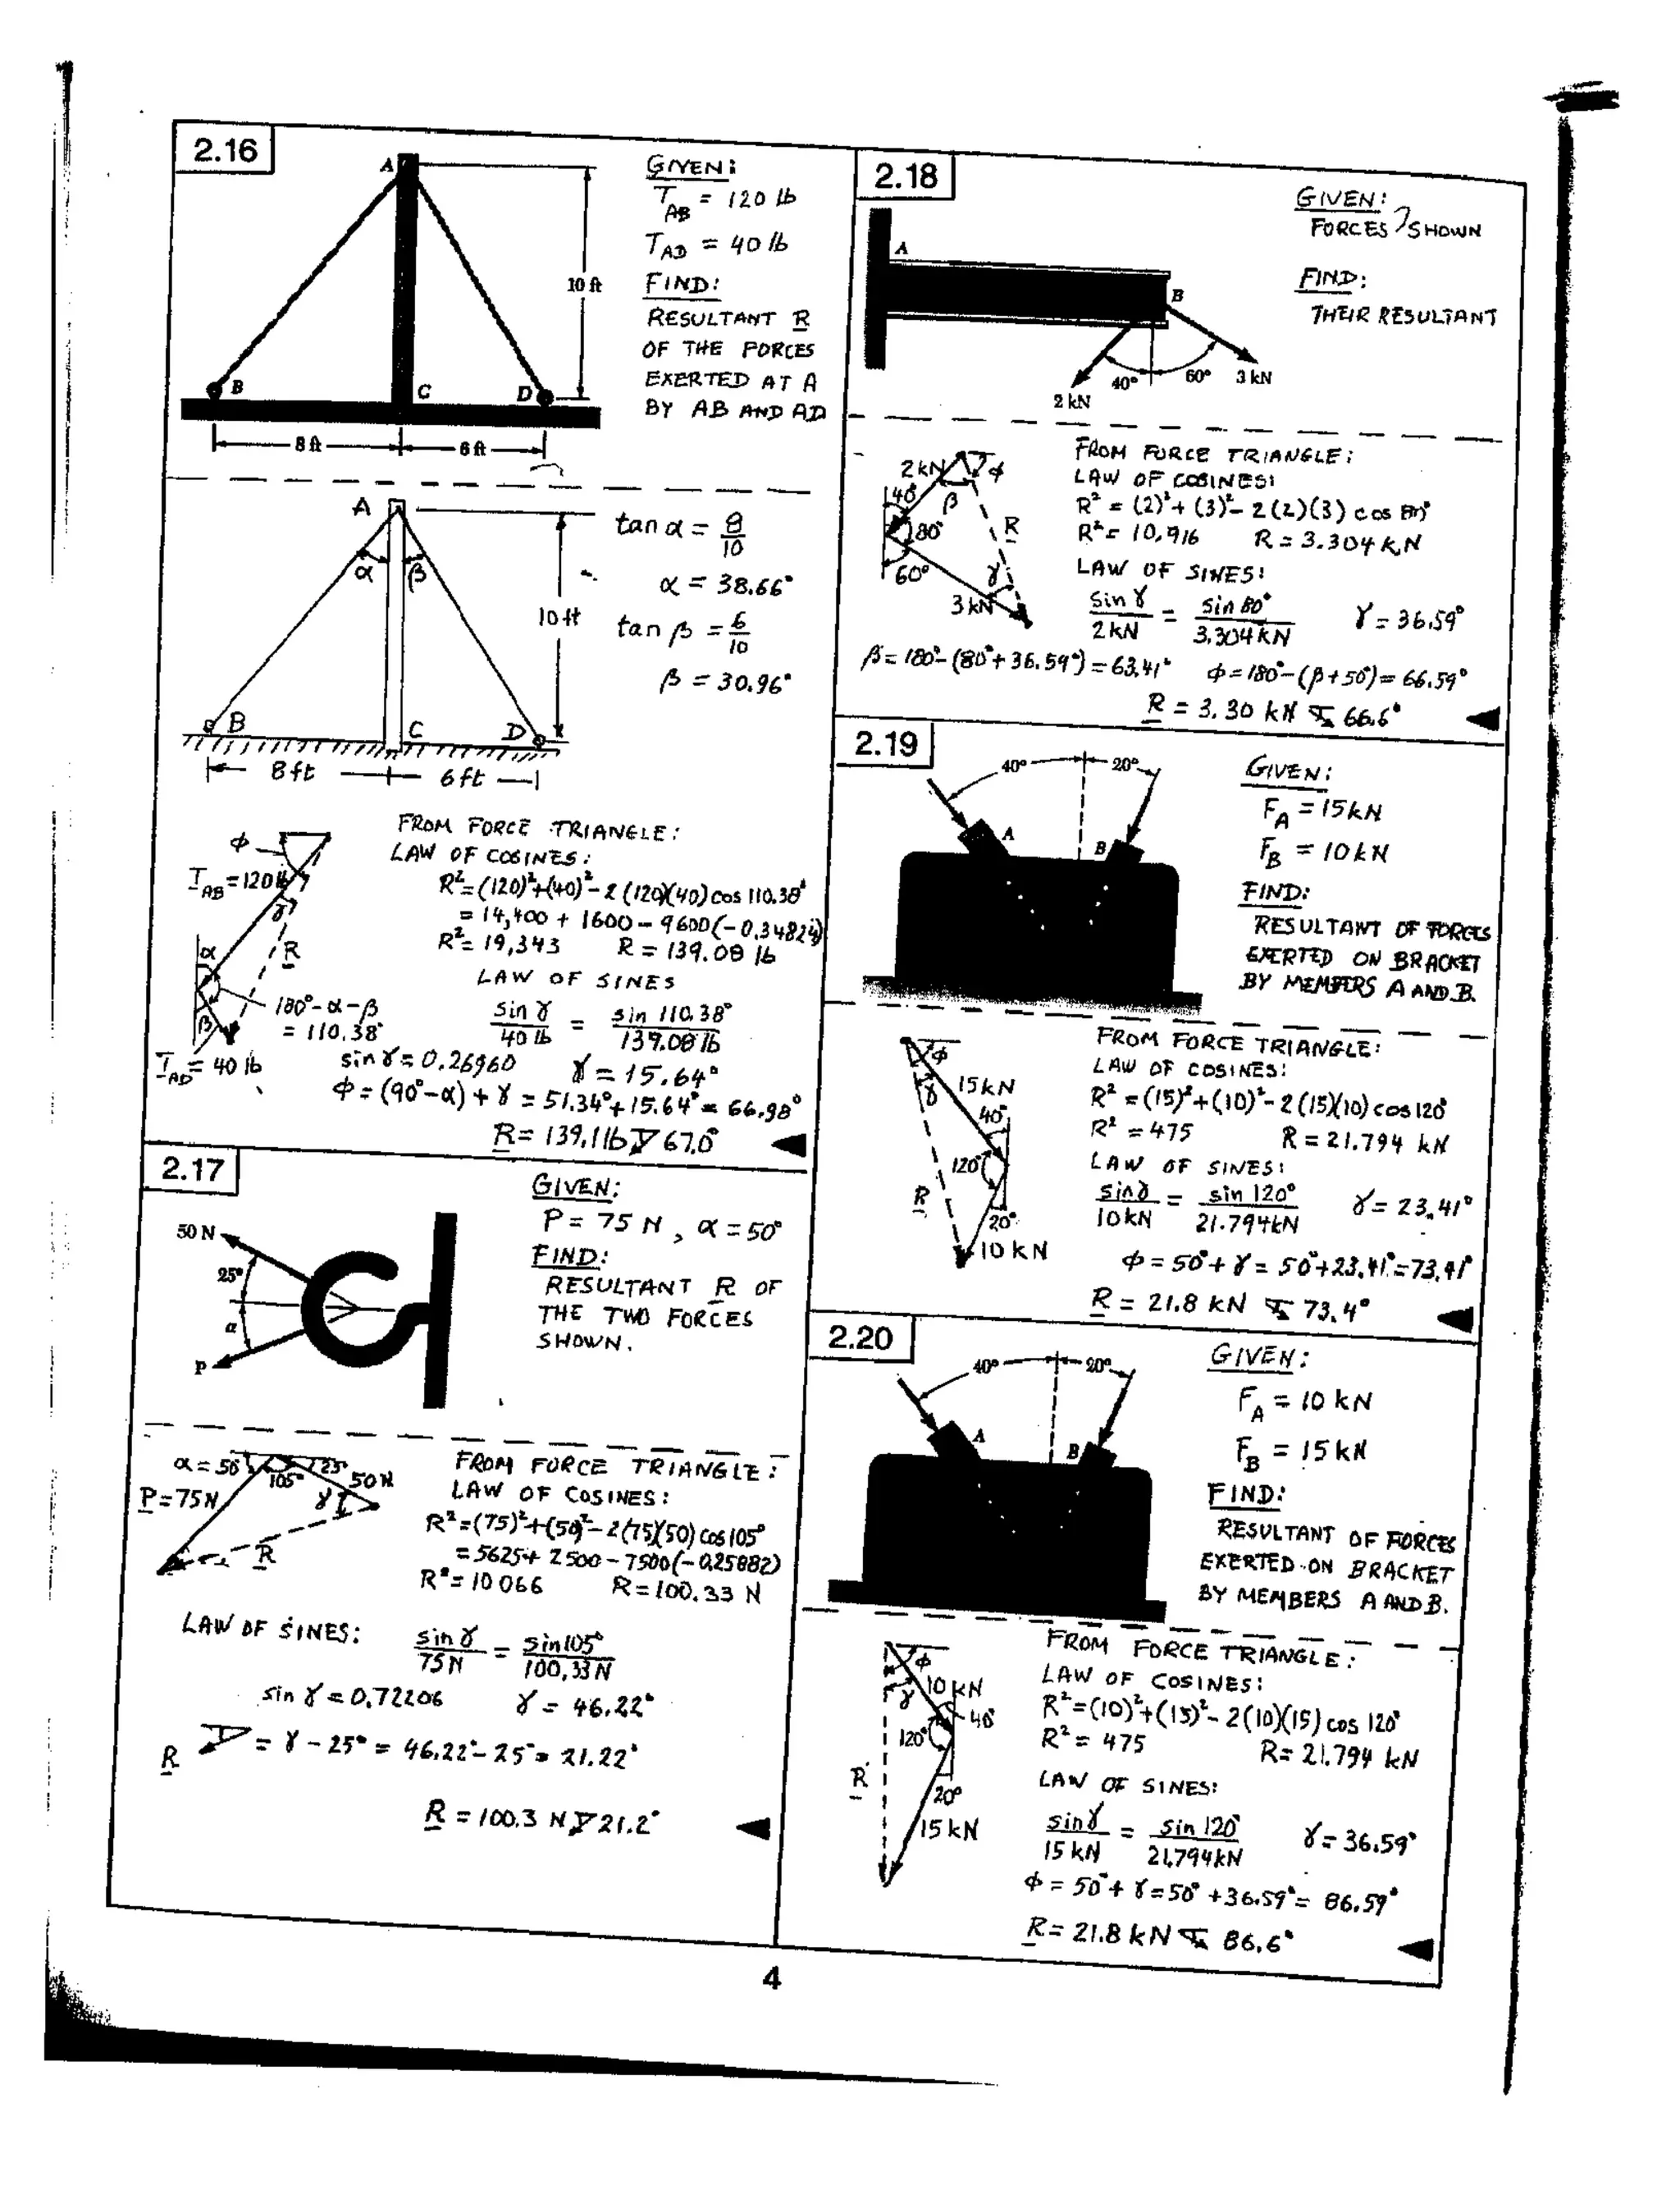 2.16
A
B
C
D
10 ft
8 ft
6 ft
GIVEN:
T_AB = 120 lb
T_AD = 40 lb
FIND:
RESULTANT R
OF THE FORCES
EXERTED AT A
BY AB AND AD
A
α β
B
C
D
10 ft
8 ft
6 ft
tan α = 8/10
α = 38.66°
tan β = 6/10
β = 30.96°
φ
T_AB = 120 lb
γ
α
R
180° - α - β
= 110.38°
β
T_AD = 40 lb
FROM FORCE TRIANGLE:
LAW OF COSINES:
R² = (120)² + (40)² - 2(120)(40) cos 110.38°
= 14,400 + 1600 - 9600(-0.34824)
R² = 19,343 R = 139.08 lb
LAW OF SINES
sin γ / 40 lb = sin 110.38° / 139.08 lb
sin γ = 0.26960 γ = 15.64°
φ = (90° - α) + γ = 51.34° + 15.64° = 66.98°
R = 139.1 lb 67.0°
2.17
50 N
25°
α
P
GIVEN:
P = 75 N, α = 50°
FIND:
RESULTANT R OF
THE TWO FORCES
SHOWN.
α = 50°
105°
25°
50 N
P = 75 N
γ
R
FROM FORCE TRIANGLE:
LAW OF COSINES:
R² = (75)² + (50)² - 2(75)(50) cos 105°
= 5625 + 2500 - 7500(-0.25882)
R² = 10 066 R = 100.33 N
LAW OF SINES:
sin γ / 75 N = sin 105° / 100.33 N
sin γ = 0.72206 γ = 46.22°
R = γ - 25° = 46.22° - 25° = 21.22°
R = 100.3 N 21.2°
2.18
A
B
40°
60°
3 kN
2 kN
GIVEN:
FORCES SHOWN
FIND:
THEIR RESULTANT
2 kN
φ
40°
β
80°
R
60°
γ
3 kN
FROM FORCE TRIANGLE:
LAW OF COSINES:
R² = (2)² + (3)² - 2(2)(3) cos 80°
R² = 10.916 R = 3.304 kN
LAW OF SINES:
sin γ / 2 kN = sin 80° / 3.304 kN γ = 36.59°
β = 180° - (80° + 36.59°) = 63.41° φ = 180° - (β + 50°) = 66.59°
R = 3.30 kN 66.6°
2.19
40°
20°
A
B
GIVEN:
F_A = 15 kN
F_B = 10 kN
FIND:
RESULTANT OF FORCES
EXERTED ON BRACKET
BY MEMBERS A AND B.
φ
γ
15 kN
40°
120°
R
20°
10 kN
FROM FORCE TRIANGLE:
LAW OF COSINES:
R² = (15)² + (10)² - 2(15)(10) cos 120°
R² = 475 R = 21.794 kN
LAW OF SINES:
sin γ / 10 kN = sin 120° / 21.794 kN γ = 23.41°
φ = 50° + γ = 50° + 23.41° = 73.41°
R = 21.8 kN 73.4°
2.20
40°
20°
A
B
GIVEN:
F_A = 10 kN
F_B = 15 kN
FIND:
RESULTANT OF FORCES
EXERTED ON BRACKET
BY MEMBERS A AND B.
φ
γ
10 kN
40°
120°
R
20°
15 kN
FROM FORCE TRIANGLE:
LAW OF COSINES:
R² = (10)² + (15)² - 2(10)(15) cos 120°
R² = 475 R = 21.794 kN
LAW OF SINES:
sin γ / 15 kN = sin 120° / 21.794 kN γ = 36.59°
φ = 50° + γ = 50° + 36.59° = 86.59°
R = 21.8 kN 86.6°
4